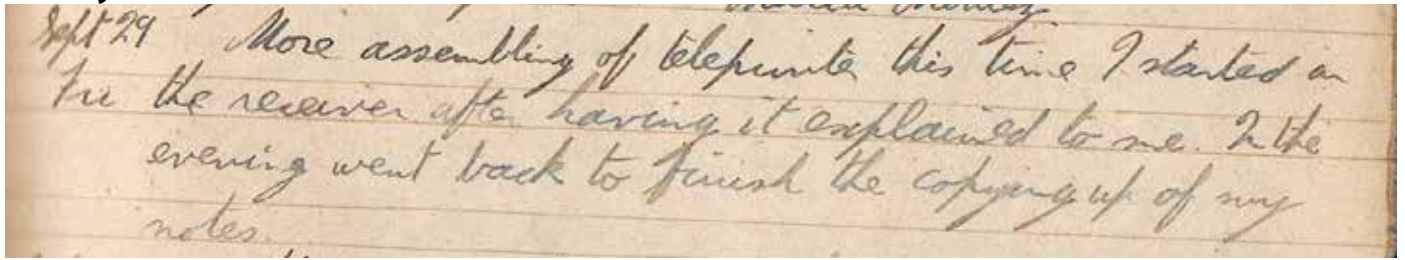 Sept 29 More assembling of teleprinte this time I started on
Fri the receiver after having it explained to me. In the
evening went back to finish the copying up of my
notes.